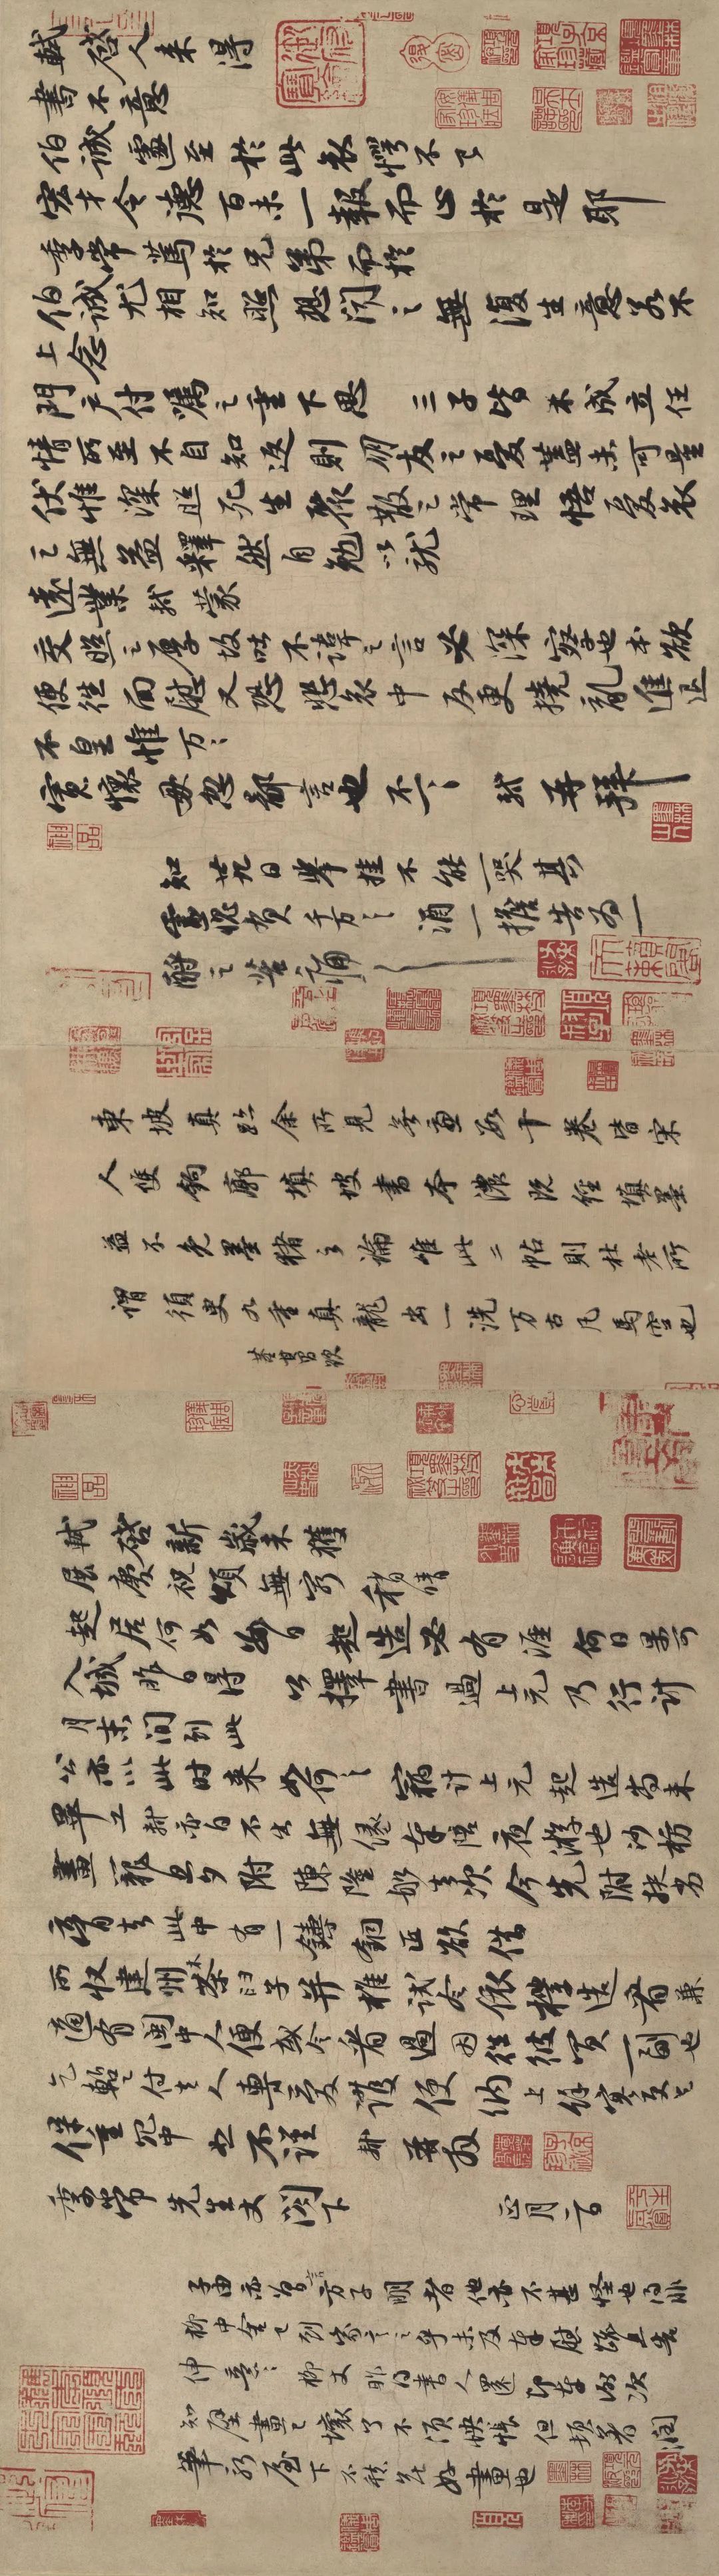 軾啓人來得
書不意
伯誠遽至於此哀愕不已
宏才令德百未一報而止於是耶
季常篤於兄弟而於
伯誠尤相知照想聞之無復生意若不
上念
門戶付囑之重下思三子皆未成立任
情所至不自知返則朋友之憂蓋未可量
伏惟深照死生聚散之常理悟憂哀
之無益釋然自勉以就
遠業軾蒙
交照之厚故吐不諱之言必深察也本欲
便往面慰又恐悲哀中反更撓亂進退
不皇惟万万
寬懷毋忽鄙言也不一一軾再拜
知廿九日舉掛不能一哭其
靈愧負千万千万酒一擔告為一
酹之苦痛苦痛
東坡真跡余所見無慮數十卷皆宋
人雙鉤廓填坡書本濃既經填墨
益不免墨豬之論惟此二帖則杜老所
謂須臾九重真龍出一洗万古凡馬空也
董其昌跋
軾啓新歲未獲
展慶祝頌無窮稍晴
起居何如數日起造必有涯何日果可
入城昨日得公擇書過上元乃行計
月末間到此
公亦以此時來如何如何竊計上元起造尚未
畢工軾亦自不出無緣奉陪夜遊也沙枋
畫籠旦夕附陳隆船去次今先附扶劣
膏去此中有一鑄銅匠欲借
所收建州木茶臼子并椎試令依樣造看兼
適有閩中人便或令看過因往彼買一副也
乞暫付去人專愛護便納上餘寒更乞
保重冗中恕不謹軾再拜
季常先生丈閣下正月二日
子由亦曾言方子明者他亦不甚怪也得非
柳中舍已到家言之乎未及奉慰疏且告
伸意伸意柳丈昨得書人還即奉謝次
知壁畫已壞了不須怏悵但頓著潤
筆新屋下不愁無好畫也